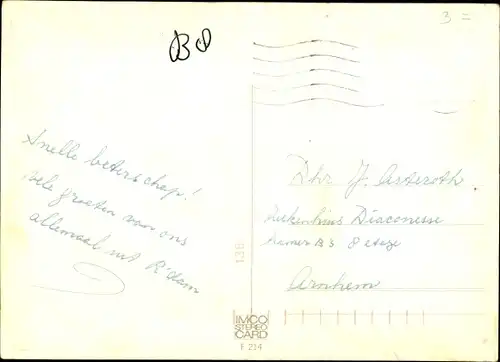 3 =
Bd
Snelle beterschap!
vele groeten van ons
allemaal uit R'dam
Dhr J. Asteroth
Ziekenhuis Diaconesse
kamer B3 8 etage
Arnhem
138
IMCO
STEREO
CARD
F 214